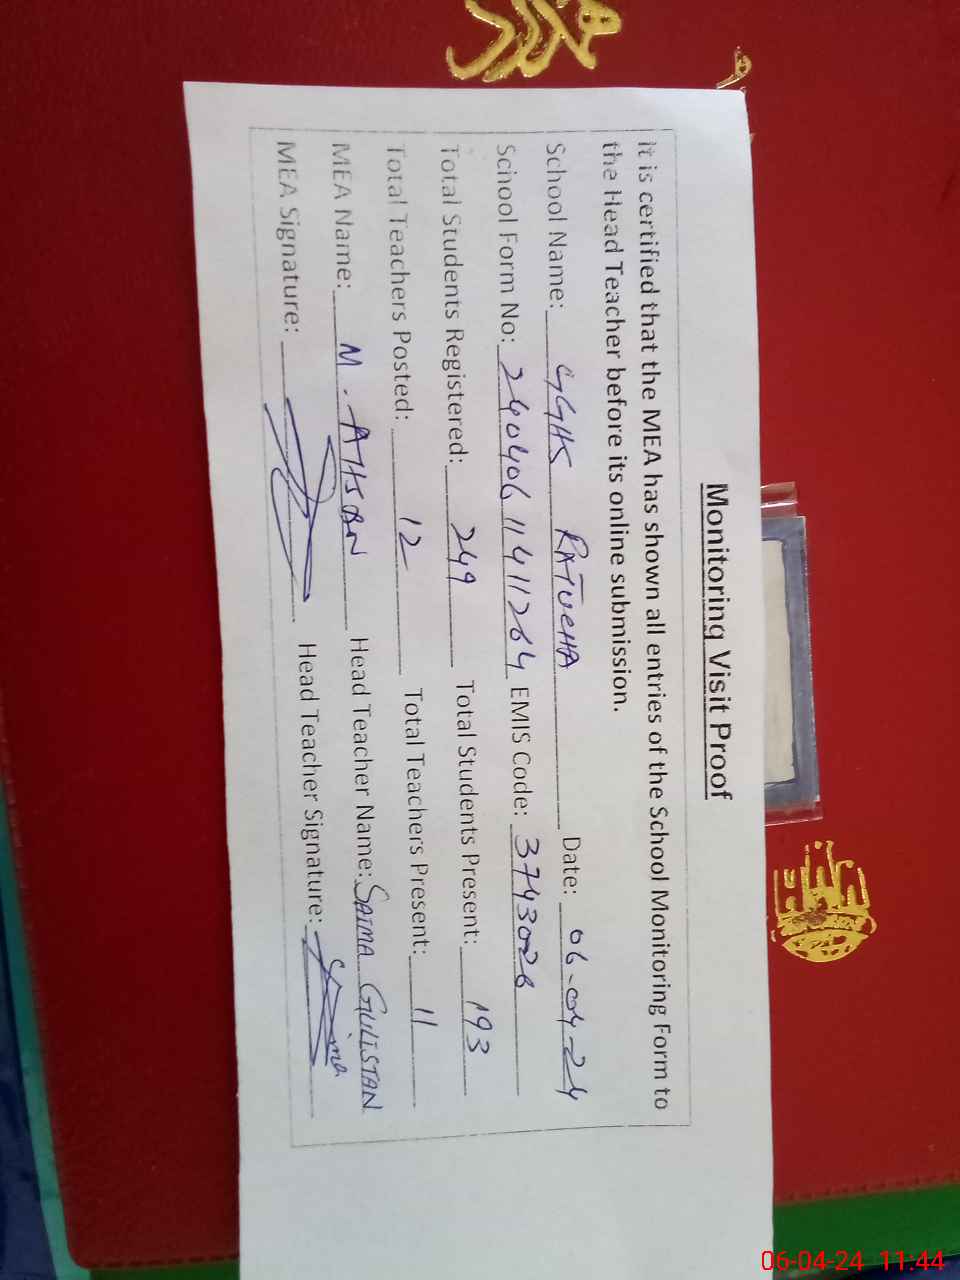 Monitoring Visit Proof
It is certified that the MEA has shown all entries of the School Monitoring Form to
the Head Teacher before its online submission.
School Name: GGHS RATUCHA Date: 06-04-24
School Form No: 24040611411264 EMIS Code: 3743026
Total Students Registered: 249 Total Students Present: 193
Total Teachers Posted: 12 Total Teachers Present: 11
MEA Name: M. AHSAN Head Teacher Name: SAIMA GULISTAN
MEA Signature: Head Teacher Signature: Saima
06-04-24 11:44